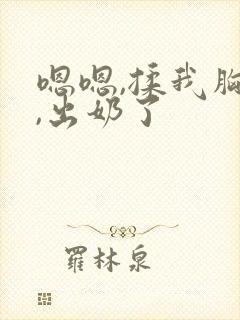 嗯嗯,揉我胸
,出奶了
羅林泉